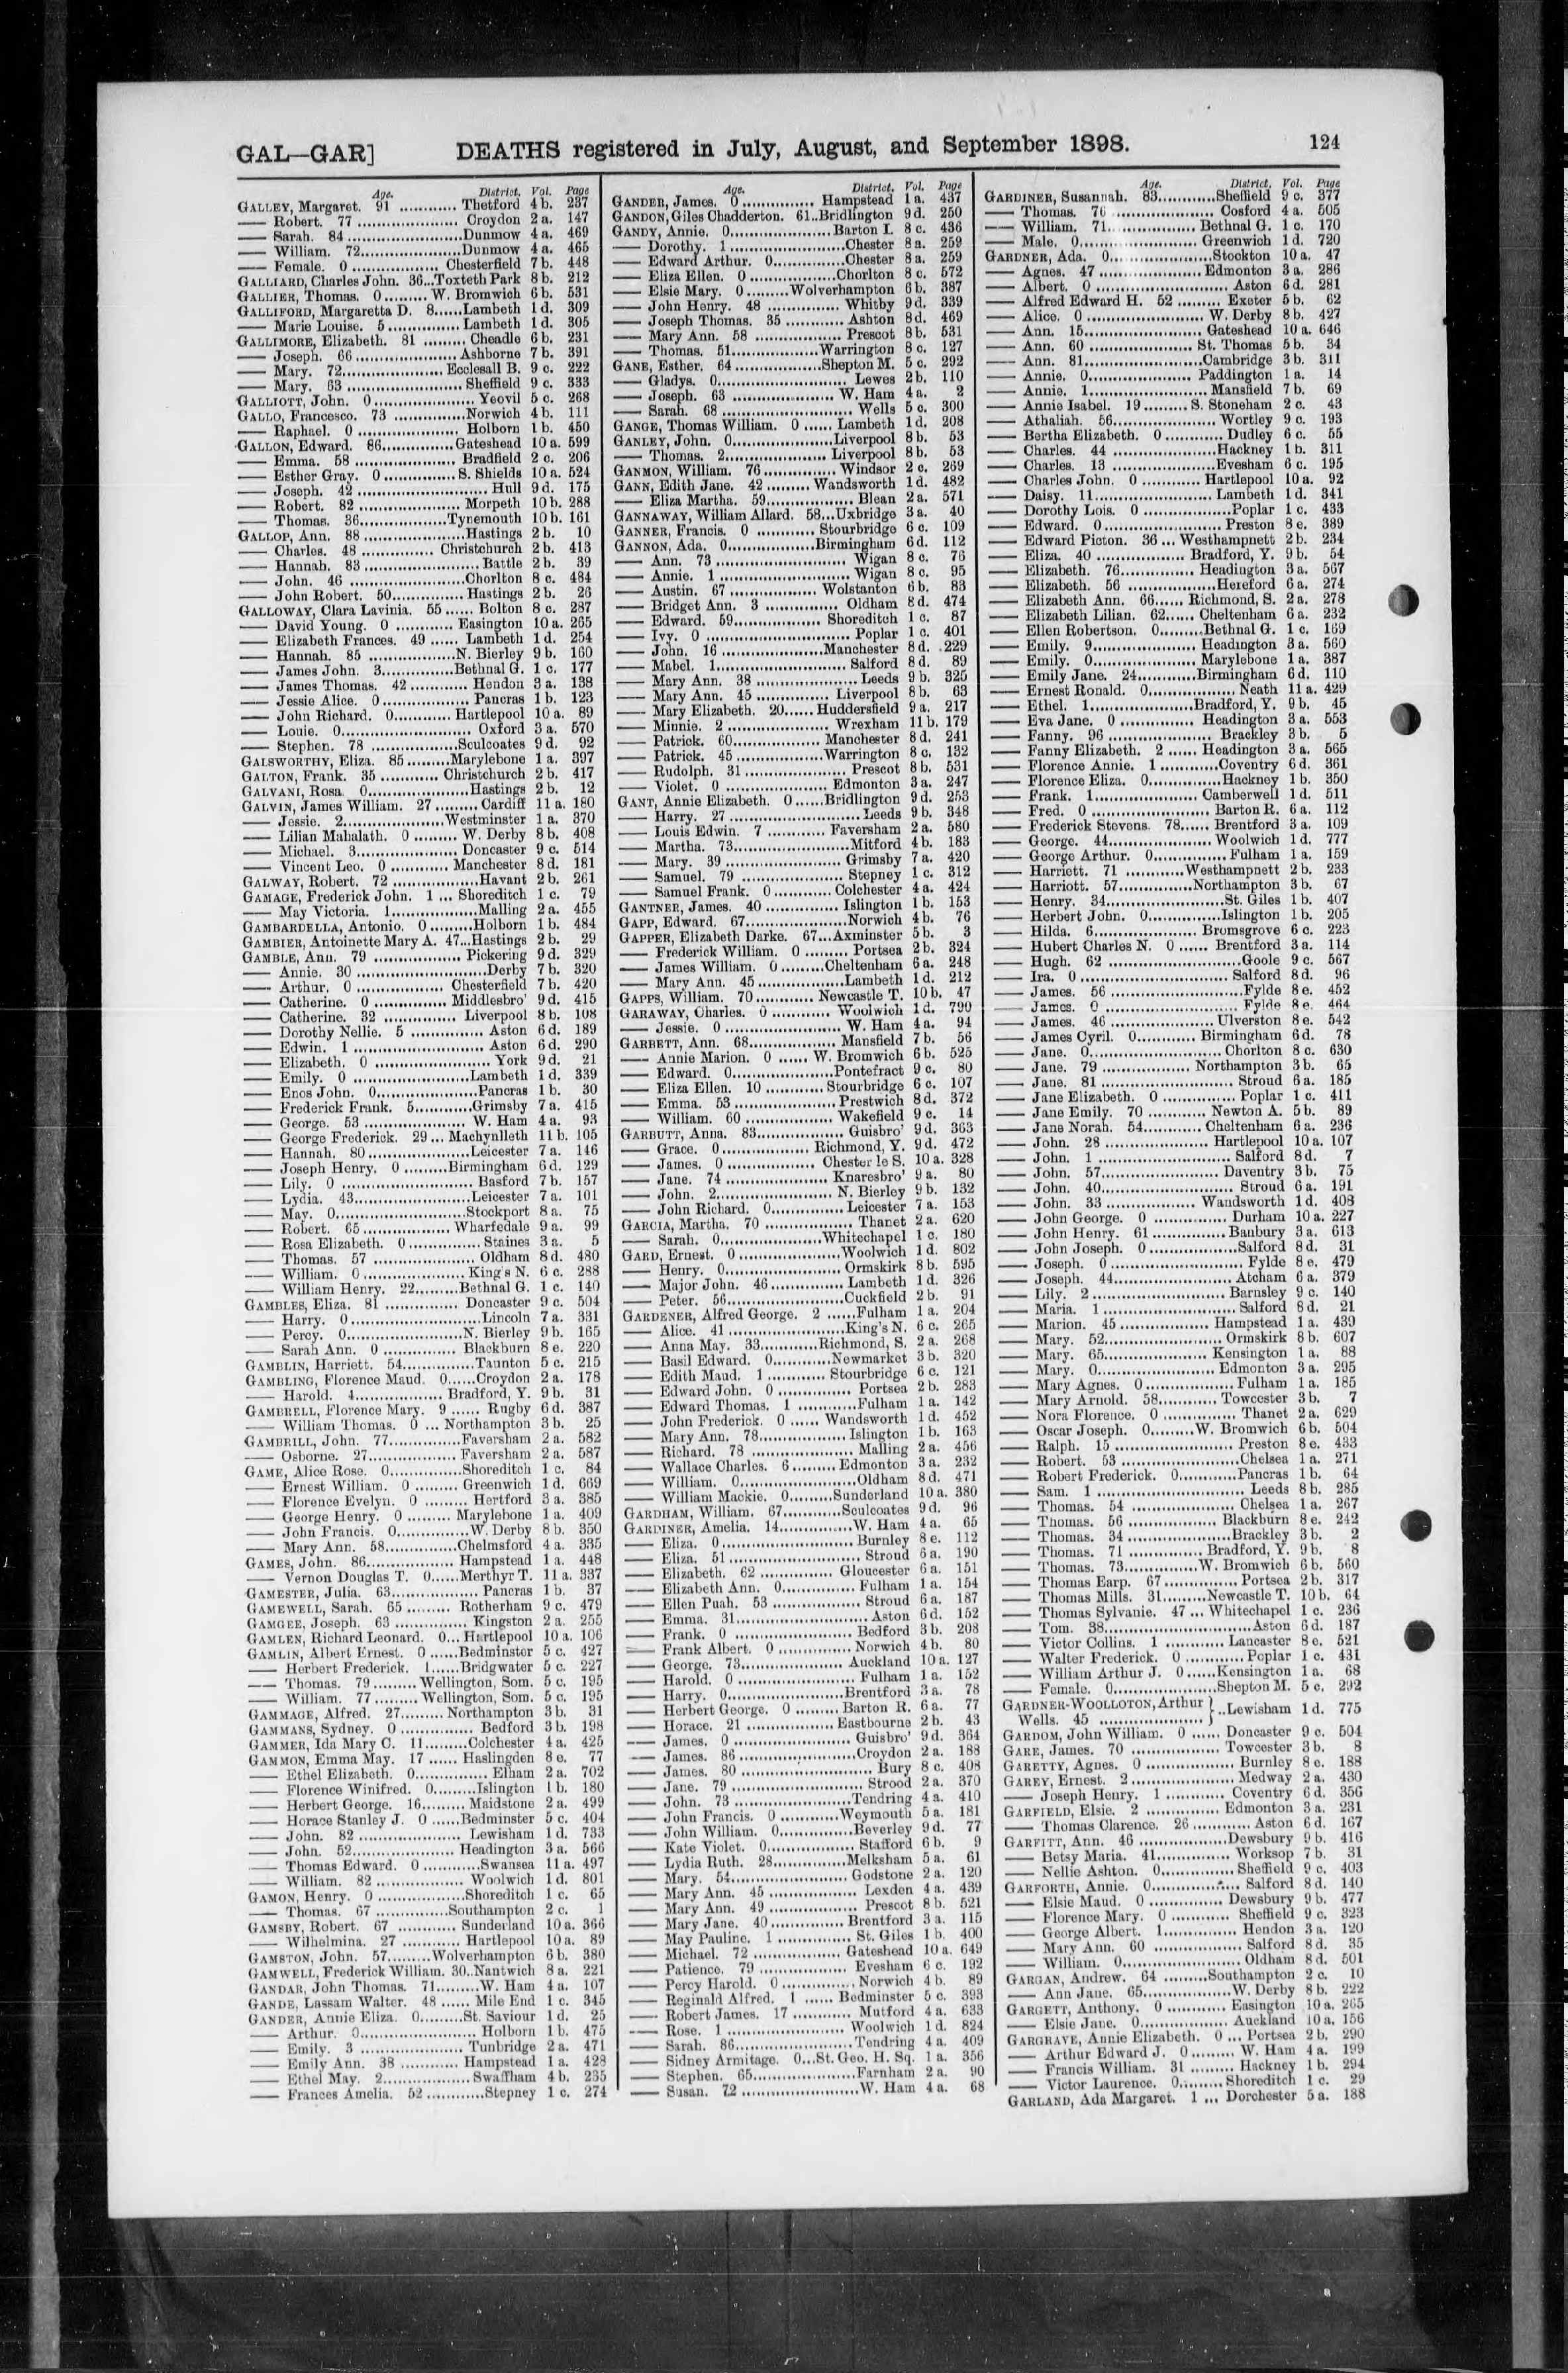 GAL—GAR] DEATHS registered in July, August, and September 1898. 124
Age. District. Vol. Page
GALLEY, Margaret. 91 ............ Thetford 4 b. 237
—— Robert. 77 ...................... Croydon 2 a. 147
—— Sarah. 84 .........................Dunmow 4 a. 469
—— William. 72......................Dunmow 4 a. 465
—— Female. 0 ................... Chesterfield 7 b. 448
GALLIARD, Charles John. 36...Toxteth Park 8 b. 212
GALLIER, Thomas. 0 ......... W. Bromwich 6 b. 531
GALLIFORD, Margaretta D. 8......Lambeth 1 d. 309
—— Marie Louise. 5 ............... Lambeth 1 d. 305
GALLIMORE, Elizabeth. 81 ......... Cheadle 6 b. 231
—— Joseph. 66 ...................... Ashborne 7 b. 391
—— Mary. 72..................... Ecclesall B. 9 c. 222
—— Mary. 63 ......................... Sheffield 9 c. 333
GALLIOTT, John. 0...................... Yeovil 5 c. 268
GALLO, Francesco. 73 ...............Norwich 4 b. 111
—— Raphael. 0 ...................... Holborn 1 b. 450
GALLON, Edward. 86...............Gateshead 10 a. 599
—— Emma. 58 ...................... Bradfield 2 c. 206
—— Esther Gray. 0 ...............S. Shields 10 a. 524
—— Joseph. 42 ............................ Hull 9 d. 175
—— Robert. 82 ...................... Morpeth 10 b. 288
—— Thomas. 36...................Tynemouth 10 b. 161
GALLOP, Ann. 88 .......................Hastings 2 b. 10
—— Charles. 48 ............... Christchurch 2 b. 413
—— Hannah. 83 ......................... Battle 2 b. 39
—— John. 46 .........................Chorlton 8 c. 484
—— John Robert. 50............... Hastings 2 b. 26
GALLOWAY, Clara Lavinia. 55 ...... Bolton 8 c. 287
—— David Young. 0 ............ Easington 10 a. 265
—— Elizabeth Frances. 49 ...... Lambeth 1 d. 254
—— Hannah. 85 ..................N. Bierley 9 b. 160
—— James John. 3...............Bethnal G. 1 c. 177
—— James Thomas. 42 ............ Hendon 3 a. 138
—— Jessie Alice. 0 .................. Pancras 1 b. 123
—— John Richard. 0............ Hartlepool 10 a. 89
—— Louie. 0............................ Oxford 3 a. 570
—— Stephen. 78 ..................Sculcoates 9 d. 92
GALSWORTHY, Eliza. 85.........Marylebone 1 a. 397
GALTON, Frank. 35 ............ Christchurch 2 b. 417
GALVANI, Rosa. 0......................Hastings 2 b. 12
GALVIN, James William. 27 ......... Cardiff 11 a. 180
—— Jessie. 2.....................Westminster 1 a. 370
—— Lilian Mahalath. 0 ......... W. Derby 8 b. 408
—— Michael. 3...................... Doncaster 9 c. 514
—— Vincent Leo. 0 ............ Manchester 8 d. 181
GALWAY, Robert. 72 ..................Havant 2 b. 261
GAMAGE, Frederick John. 1 ... Shoreditch 1 c. 79
—— May Victoria. 1..................Malling 2 a. 455
GAMBARDELLA, Antonio. 0 .........Holborn 1 b. 484
GAMBIER, Antoinette Mary A. 47...Hastings 2 b. 29
GAMBLE, Ann. 79 ................... Pickering 9 d. 329
—— Annie. 30 ............................Derby 7 b. 320
—— Arthur. 0 ................... Chesterfield 7 b. 420
—— Catherine. 0 ............... Middlesbro' 9 d. 415
—— Catherine. 32 ................. Liverpool 8 b. 108
—— Dorothy Nellie. 5 ............... Aston 6 d. 189
—— Edwin. 1 ............................ Aston 6 d. 290
—— Elizabeth. 0 ......................... York 9 d. 21
—— Emily. 0 .........................Lambeth 1 d. 339
—— Enos John. 0......................Pancras 1 b. 30
—— Frederick Frank. 5............Grimsby 7 a. 415
—— George. 53 ...................... W. Ham 4 a. 93
—— George Frederick. 29 ... Machynlleth 11 b. 105
—— Hannah. 80......................Leicester 7 a. 146
—— Joseph Henry. 0 .........Birmingham 6 d. 129
—— Lily. 0 ............................ Basford 7 b. 157
—— Lydia. 43.........................Leicester 7 a. 101
—— May. 0............................Stockport 8 a. 75
—— Robert. 65 ................... Wharfedale 9 a. 99
—— Rosa Elizabeth. 0 ............... Staines 3 a. 5
—— Thomas. 57 ...................... Oldham 8 d. 480
—— William. 0 ......................King's N. 6 c. 288
—— William Henry. 22.........Bethnal G. 1 c. 140
GAMBLES, Eliza. 81 ............... Doncaster 9 c. 504
—— Harry. 0 ............................Lincoln 7 a. 331
—— Percy. 0.........................N. Bierley 9 b. 165
—— Sarah Ann. 0 ............... Blackburn 8 e. 220
GAMBLIN, Harriett. 54...............Taunton 5 c. 215
GAMBLING, Florence Maud. 0......Croydon 2 a. 178
—— Harold. 4................... Bradford, Y. 9 b. 31
GAMBRELL, Florence Mary. 9 ...... Rugby 6 d. 387
—— William Thomas. 0 ... Northampton 3 b. 25
GAMBRILL, John. 77...............Faversham 2 a. 582
—— Osborne. 27................... Faversham 2 a. 587
GAME, Alice Rose. 0...............Shoreditch 1 c. 84
—— Ernest William. 0 ......... Greenwich 1 d. 669
—— Florence Evelyn. 0 ......... Hertford 3 a. 385
—— George Henry. 0 ......... Marylebone 1 a. 409
—— John Francis. 0...............W. Derby 8 b. 350
—— Mary Ann. 58...............Chelmsford 4 a. 335
GAMES, John. 86................... Hampstead 1 a. 448
—— Vernon Douglas T. 0......Merthyr T. 11 a. 337
GAMESTER, Julia. 63................... Pancras 1 b. 37
GAMEWELL, Sarah. 65 ......... Rotherham 9 c. 479
GAMGEE, Joseph. 63 ............... Kingston 2 a. 255
GAMLEN, Richard Leonard. 0... Hartlepool 10 a. 106
GAMLIN, Albert Ernest. 0 ......Bedminster 5 c. 427
—— Herbert Frederick. 1......Bridgwater 5 c. 227
—— Thomas. 79 ......... Wellington, Som. 5 c. 195
—— William. 77 ......... Wellington, Som. 5 c. 195
GAMMAGE, Alfred. 27......... Northampton 3 b. 31
GAMMANS, Sydney. 0 ............... Bedford 3 b. 198
GAMMER, Ida Mary C. 11.........Colchester 4 a. 425
GAMMON, Emma May. 17 ...... Haslingden 8 e. 77
—— Ethel Elizabeth. 0............... Elham 2 a. 702
—— Florence Winifred. 0.........Islington 1 b. 180
—— Herbert George. 16......... Maidstone 2 a. 499
—— Horace Stanley J. 0 ......Bedminster 5 c. 404
—— John. 82 ...................... Lewisham 1 d. 733
—— John. 52...................... Headington 3 a. 566
—— Thomas Edward. 0 ............Swansea 11 a. 497
—— William. 82 ................... Woolwich 1 d. 801
GAMON, Henry. 0 ...................Shoreditch 1 c. 65
—— Thomas. 67 ...............Southampton 2 c. 1
GAMSBY, Robert. 67 ............ Sunderland 10 a. 366
—— Wilhelmina. 27 ............ Hartlepool 10 a. 89
GAMSTON, John. 57.........Wolverhampton 6 b. 380
GAMWELL, Frederick William. 30..Nantwich 8 a. 221
GANDAR, John Thomas. 71.........W. Ham 4 a. 107
GANDE, Lassam Walter. 48 ...... Mile End 1 c. 345
GANDER, Annie Eliza. 0.........St. Saviour 1 d. 25
—— Arthur. 0......................... Holborn 1 b. 475
—— Emily. 3 ...................... Tunbridge 2 a. 471
—— Emily Ann. 38 ............ Hampstead 1 a. 428
—— Ethel May. 2................... Swaffham 4 b. 235
—— Frances Amelia. 52 ............Stepney 1 c. 274
Age. District. Vol. Page
GANDER, James. 0 ............... Hampstead 1 a. 437
GANDON, Giles Chadderton. 61..Bridlington 9 d. 250
GANDY, Annie. 0......................Barton I. 8 c. 436
—— Dorothy. 1 .........................Chester 8 a. 259
—— Edward Arthur. 0...............Chester 8 a. 259
—— Eliza Ellen. 0 ..................Chorlton 8 c. 572
—— Elsie Mary. 0 .........Wolverhampton 6 b. 387
—— John Henry. 48 ............... Whitby 9 d. 339
—— Joseph Thomas. 35 ............ Ashton 8 d. 469
—— Mary Ann. 58 .................. Prescot 8 b. 531
—— Thomas. 51..................Warrington 8 c. 127
GANE, Esther. 64 ..................Shepton M. 5 c. 292
—— Gladys. 0............................ Lewes 2 b. 110
—— Joseph. 63 ...................... W. Ham 4 a. 2
—— Sarah. 68 ............................ Wells 5 c. 300
GANGE, Thomas William. 0 ...... Lambeth 1 d. 208
GANLEY, John. 0......................Liverpool 8 b. 53
—— Thomas. 2...................... Liverpool 8 b. 53
GANMON, William. 76............... Windsor 2 c. 269
GANN, Edith Jane. 42 ......... Wandsworth 1 d. 482
—— Eliza Martha. 59................... Blean 2 a. 571
GANNAWAY, William Allard. 58...Uxbridge 3 a. 40
GANNER, Francis. 0 ............ Stourbridge 6 c. 109
GANNON, Ada. 0...................Birmingham 6 d. 112
—— Ann. 73 ............................ Wigan 8 c. 76
—— Annie. 1 ............................ Wigan 8 c. 95
—— Austin. 67 ................... Wolstanton 6 b. 83
—— Bridget Ann. 3 ............... Oldham 8 d. 474
—— Edward. 59................... Shoreditch 1 c. 87
—— Ivy. 0 ............................... Poplar 1 c. 401
—— John. 16 ......................Manchester 8 d. 229
—— Mabel. 1............................ Salford 8 d. 89
—— Mary Ann. 38 ...................... Leeds 9 b. 325
—— Mary Ann. 45 ............... Liverpool 8 b. 63
—— Mary Elizabeth. 20...... Huddersfield 9 a. 217
—— Minnie. 2 ...................... Wrexham 11 b. 179
—— Patrick. 60................... Manchester 8 d. 241
—— Patrick. 45 ..................Warrington 8 c. 132
—— Rudolph. 31 ...................... Prescot 8 b. 531
—— Violet. 0 ...................... Edmonton 3 a. 247
GANT, Annie Elizabeth. 0......Bridlington 9 d. 253
—— Harry. 27 ............................ Leeds 9 b. 348
—— Louis Edwin. 7 ............ Faversham 2 a. 580
—— Martha. 73.........................Mitford 4 b. 183
—— Mary. 39 ......................... Grimsby 7 a. 420
—— Samuel. 79 ...................... Stepney 1 c. 312
—— Samuel Frank. 0 ............ Colchester 4 a. 424
GANTNER, James. 40 ............... Islington 1 b. 153
GAPP, Edward. 67......................Norwich 4 b. 76
GAPPER, Elizabeth Darke. 67...Axminster 5 b. 3
—— Frederick William. 0 ......... Portsea 2 b. 324
—— James William. 0 .........Cheltenham 6 a. 248
—— Mary Ann. 45 ..................Lambeth 1 d. 212
GAPPS, William. 70............ Newcastle T. 10 b. 47
GARAWAY, Charles. 0 ............ Woolwich 1 d. 790
—— Jessie. 0 ......................... W. Ham 4 a. 94
GARBETT, Ann. 68................... Mansfield 7 b. 56
—— Annie Marion. 0 ...... W. Bromwich 6 b. 525
—— Edward. 0......................Pontefract 9 c. 80
—— Eliza Ellen. 10 ............ Stourbridge 6 c. 107
—— Emma. 53 ......................Prestwich 8 d. 372
—— William. 60 ................... Wakefield 9 c. 14
GARBUTT, Anna. 83................... Guisbro' 9 d. 363
—— Grace. 0................... Richmond, Y. 9 d. 472
—— James. 0 ................... Chester le S. 10 a. 328
—— Jane. 74 ...................... Knaresbro' 9 a. 80
—— John. 2......................... N. Bierley 9 b. 132
—— John Richard. 0............... Leicester 7 a. 153
GARCIA, Martha. 70 ................... Thanet 2 a. 620
—— Sarah. 0......................Whitechapel 1 c. 180
GARD, Ernest. 0 ......................Woolwich 1 d. 802
—— Henry. 0......................... Ormskirk 8 b. 595
—— Major John. 46 ............... Lambeth 1 d. 326
—— Peter. 56.........................Cuckfield 2 b. 91
GARDENER, Alfred George. 2 ......Fulham 1 a. 204
—— Alice. 41 .........................King's N. 6 c. 265
—— Anna May. 33............Richmond, S. 2 a. 268
—— Basil Edward. 0............Newmarket 3 b. 320
—— Edith Maud. 1 ............ Stourbridge 6 c. 121
—— Edward John. 0 ............... Portsea 2 b. 283
—— Edward Thomas. 1 ............Fulham 1 a. 142
—— John Frederick. 0 ...... Wandsworth 1 d. 452
—— Mary Ann. 78................... Islington 1 b. 163
—— Richard. 78 ...................... Malling 2 a. 456
—— Wallace Charles. 6......... Edmonton 3 a. 232
—— William. 0.........................Oldham 8 d. 471
—— William Mackie. 0.........Sunderland 10 a. 380
GARDHAM, William. 67............Sculcoates 9 d. 96
GARDINER, Amelia. 14...............W. Ham 4 a. 65
—— Eliza. 0 ............................ Burnley 8 e. 112
—— Eliza. 51 ............................ Stroud 6 a. 190
—— Elizabeth. 62 ............... Gloucester 6 a. 151
—— Elizabeth Ann. 0............... Fulham 1 a. 154
—— Ellen Puah. 53 ................... Stroud 6 a. 187
—— Emma. 31............................ Aston 6 d. 152
—— Frank. 0 ......................... Bedford 3 b. 208
—— Frank Albert. 0 ............... Norwich 4 b. 80
—— George. 73...................... Auckland 10 a. 127
—— Harold. 0 ......................... Fulham 1 a. 152
—— Harry. 0.........................Brentford 3 a. 78
—— Herbert George. 0 ......... Barton R. 6 a. 77
—— Horace. 21 ................... Eastbourne 2 b. 43
—— James. 0 ......................... Guisbro' 9 d. 364
—— James. 86 .........................Croydon 2 a. 188
—— James. 80 ............................ Bury 8 c. 408
—— Jane. 79 ............................ Strood 2 a. 370
—— John. 73 .........................Tendring 4 a. 410
—— John Francis. 0 ............Weymouth 5 a. 181
—— John William. 0...............Beverley 9 d. 77
—— Kate Violet. 0................... Stafford 6 b. 9
—— Lydia Ruth. 28...............Melksham 5 a. 61
—— Mary. 54......................... Godstone 2 a. 120
—— Mary Ann. 45 ................... Lexden 4 a. 439
—— Mary Ann. 49 ................... Prescot 8 b. 521
—— Mary Jane. 40 ............... Brentford 3 a. 115
—— May Pauline. 1 ............... St. Giles 1 b. 400
—— Michael. 72 ................... Gateshead 10 a. 649
—— Patience. 79 ................... Evesham 6 c. 192
—— Percy Harold. 0 ............... Norwich 4 b. 89
—— Reginald Alfred. 1 ...... Bedminster 5 c. 393
—— Robert James. 17 ............ Mutford 4 a. 633
—— Rose. 1 ......................... Woolwich 1 d. 824
—— Sarah. 86.........................Tendring 4 a. 409
—— Sidney Armitage. 0...St. Geo. H. Sq. 1 a. 356
—— Stephen. 65......................Farnham 2 a. 90
—— Susan. 72 .........................W. Ham 4 a. 68
Age. District. Vol. Page
GARDINER, Susannah. 83............Sheffield 9 c. 377
—— Thomas. 76 ...................... Cosford 4 a. 505
—— William. 71................... Bethnal G. 1 c. 170
—— Male. 0......................... Greenwich 1 d. 720
GARDNER, Ada. 0......................Stockton 10 a. 47
—— Agnes. 47 ......................Edmonton 3 a. 286
—— Albert. 0 ............................ Aston 6 d. 281
—— Alfred Edward H. 52 ......... Exeter 5 b. 62
—— Alice. 0 ......................... W. Derby 8 b. 427
—— Ann. 15......................... Gateshead 10 a. 646
—— Ann. 60 ......................... St. Thomas 5 b. 34
—— Ann. 81.........................Cambridge 3 b. 311
—— Annie. 0...................... Paddington 1 a. 14
—— Annie. 1......................... Mansfield 7 b. 69
—— Annie Isabel. 19 ......... S. Stoneham 2 c. 43
—— Athaliah. 56...................... Wortley 9 c. 193
—— Bertha Elizabeth. 0 ............ Dudley 6 c. 55
—— Charles. 44 ......................Hackney 1 b. 311
—— Charles. 13 ......................Evesham 6 c. 195
—— Charles John. 0 ............ Hartlepool 10 a. 92
—— Daisy. 11......................... Lambeth 1 d. 341
—— Dorothy Lois. 0 ..................Poplar 1 c. 433
—— Edward. 0......................... Preston 8 e. 389
—— Edward Picton. 36 ... Westhampnett 2 b. 234
—— Eliza. 40 ................... Bradford, Y. 9 b. 54
—— Elizabeth. 76............... Headington 3 a. 567
—— Elizabeth. 56 ...................Hereford 6 a. 274
—— Elizabeth Ann. 66...... Richmond, S. 2 a. 278
—— Elizabeth Lilian. 62...... Cheltenham 6 a. 232
—— Ellen Robertson. 0.........Bethnal G. 1 c. 169
—— Emily. 9...................... Headington 3 a. 560
—— Emily. 0...................... Marylebone 1 a. 387
—— Emily Jane. 24............Birmingham 6 d. 110
—— Ernest Ronald. 0.................. Neath 11 a. 429
—— Ethel. 1......................Bradford, Y. 9 b. 45
—— Eva Jane. 0 ............... Headington 3 a. 553
—— Fanny. 96 ...................... Brackley 3 b. 5
—— Fanny Elizabeth. 2 ...... Headington 3 a. 565
—— Florence Annie. 1 ............Coventry 6 d. 361
—— Florence Eliza. 0...............Hackney 1 b. 350
—— Frank. 1...................... Camberwell 1 d. 511
—— Fred. 0 ......................... Barton R. 6 a. 112
—— Frederick Stevens. 78...... Brentford 3 a. 109
—— George. 44...................... Woolwich 1 d. 777
—— George Arthur. 0............... Fulham 1 a. 159
—— Harriett. 71 ............Westhampnett 2 b. 233
—— Harriott. 57...............Northampton 3 b. 67
—— Henry. 34.........................St. Giles 1 b. 407
—— Herbert John. 0...............Islington 1 b. 205
—— Hilda. 6...................... Bromsgrove 6 c. 223
—— Hubert Charles N. 0 ...... Brentford 3 a. 114
—— Hugh. 62 ............................Goole 9 c. 567
—— Ira. 0 ............................... Salford 8 d. 96
—— James. 56 ............................Fylde 8 e. 452
—— James. 0 ............................ Fylde 8 e. 464
—— James. 46 ......................Ulverston 8 e. 542
—— James Cyril. 0............ Birmingham 6 d. 78
—— Jane. 0............................ Chorlton 8 c. 630
—— Jane. 79 ................... Northampton 3 b. 65
—— Jane. 81 ............................ Stroud 6 a. 185
—— Jane Elizabeth. 0 ............... Poplar 1 c. 411
—— Jane Emily. 70 ............ Newton A. 5 b. 89
—— Jane Norah. 54............ Cheltenham 6 a. 236
—— John. 28 ...................... Hartlepool 10 a. 107
—— John. 1 ............................ Salford 8 d. 7
—— John. 57......................... Daventry 3 b. 75
—— John. 40............................ Stroud 6 a. 191
—— John. 33 ................... Wandsworth 1 d. 408
—— John George. 0 ............... Durham 10 a. 227
—— John Henry. 61 ............... Banbury 3 a. 613
—— John Joseph. 0 ..................Salford 8 d. 31
—— Joseph. 0 ............................ Fylde 8 e. 479
—— Joseph. 44......................... Atcham 6 a. 379
—— Lily. 2 ............................ Barnsley 9 c. 140
—— Maria. 1 ............................ Salford 8 d. 21
—— Marion. 45 ................... Hampstead 1 a. 439
—— Mary. 52......................... Ormskirk 8 b. 607
—— Mary. 65...................... Kensington 1 a. 88
—— Mary. 0......................... Edmonton 3 a. 295
—— Mary Agnes. 0 ................... Fulham 1 a. 185
—— Mary Arnold. 58............ Towcester 3 b. 7
—— Nora Florence. 0 ............... Thanet 2 a. 629
—— Oscar Joseph. 0.........W. Bromwich 6 b. 504
—— Ralph. 15 ......................... Preston 8 e. 433
—— Robert. 53 .........................Chelsea 1 a. 271
—— Robert Frederick. 0............Pancras 1 b. 64
—— Sam. 1 ............................... Leeds 8 b. 285
—— Thomas. 54 ...................... Chelsea 1 a. 267
—— Thomas. 56 ................... Blackburn 8 e. 242
—— Thomas. 34 ......................Brackley 3 b. 2
—— Thomas. 71 ............... Bradford, Y. 9 b. 8
—— Thomas. 73...............W. Bromwich 6 b. 560
—— Thomas Earp. 67 ............... Portsea 2 b. 317
—— Thomas Mills. 31.........Newcastle T. 10 b. 64
—— Thomas Sylvanie. 47 ... Whitechapel 1 c. 236
—— Tom. 38...............................Aston 6 d. 187
—— Victor Collins. 1 ............ Lancaster 8 e. 521
—— Walter Frederick. 0 ............ Poplar 1 c. 431
—— William Arthur J. 0......Kensington 1 a. 68
—— Female. 0......................Shepton M. 5 c. 292
GARDNER-WOOLLOTON, Arthur } ..Lewisham 1 d. 775
Wells. 45 ......................
GARDOM, John William. 0 ...... Doncaster 9 c. 504
GARE, James. 70 ................... Towcester 3 b. 8
GARETTY, Agnes. 0 ................... Burnley 8 e. 188
GAREY, Ernest. 2...................... Medway 2 a. 430
—— Joseph Henry. 1 ............ Coventry 6 d. 356
GARFIELD, Elsie. 2 ............... Edmonton 3 a. 231
—— Thomas Clarence. 26 ............ Aston 6 d. 167
GARFITT, Ann. 46 ...................Dewsbury 9 b. 416
—— Betsy Maria. 41............... Worksop 7 b. 31
—— Nellie Ashton. 0............... Sheffield 9 c. 403
GARFORTH, Annie. 0................... Salford 8 d. 140
—— Elsie Maud. 0 ............... Dewsbury 9 b. 477
—— Florence Mary. 0 ............ Sheffield 9 c. 323
—— George Albert. 1............... Hendon 3 a. 120
—— Mary Ann. 60 ................... Salford 8 d. 35
—— William. 0......................... Oldham 8 d. 501
GARGAN, Andrew. 64 .........Southampton 2 c. 10
—— Ann Jane. 65..................W. Derby 8 b. 222
GARGETT, Anthony. 0 ............ Easington 10 a. 265
—— Elsie Jane. 0................... Auckland 10 a. 156
GARGRAVE, Annie Elizabeth. 0 ... Portsea 2 b. 290
—— Arthur Edward J. 0......... W. Ham 4 a. 199
—— Francis William. 31 ......... Hackney 1 b. 294
—— Victor Laurence. 0......... Shoreditch 1 c. 29
GARLAND, Ada Margaret. 1 ... Dorchester 5 a. 188